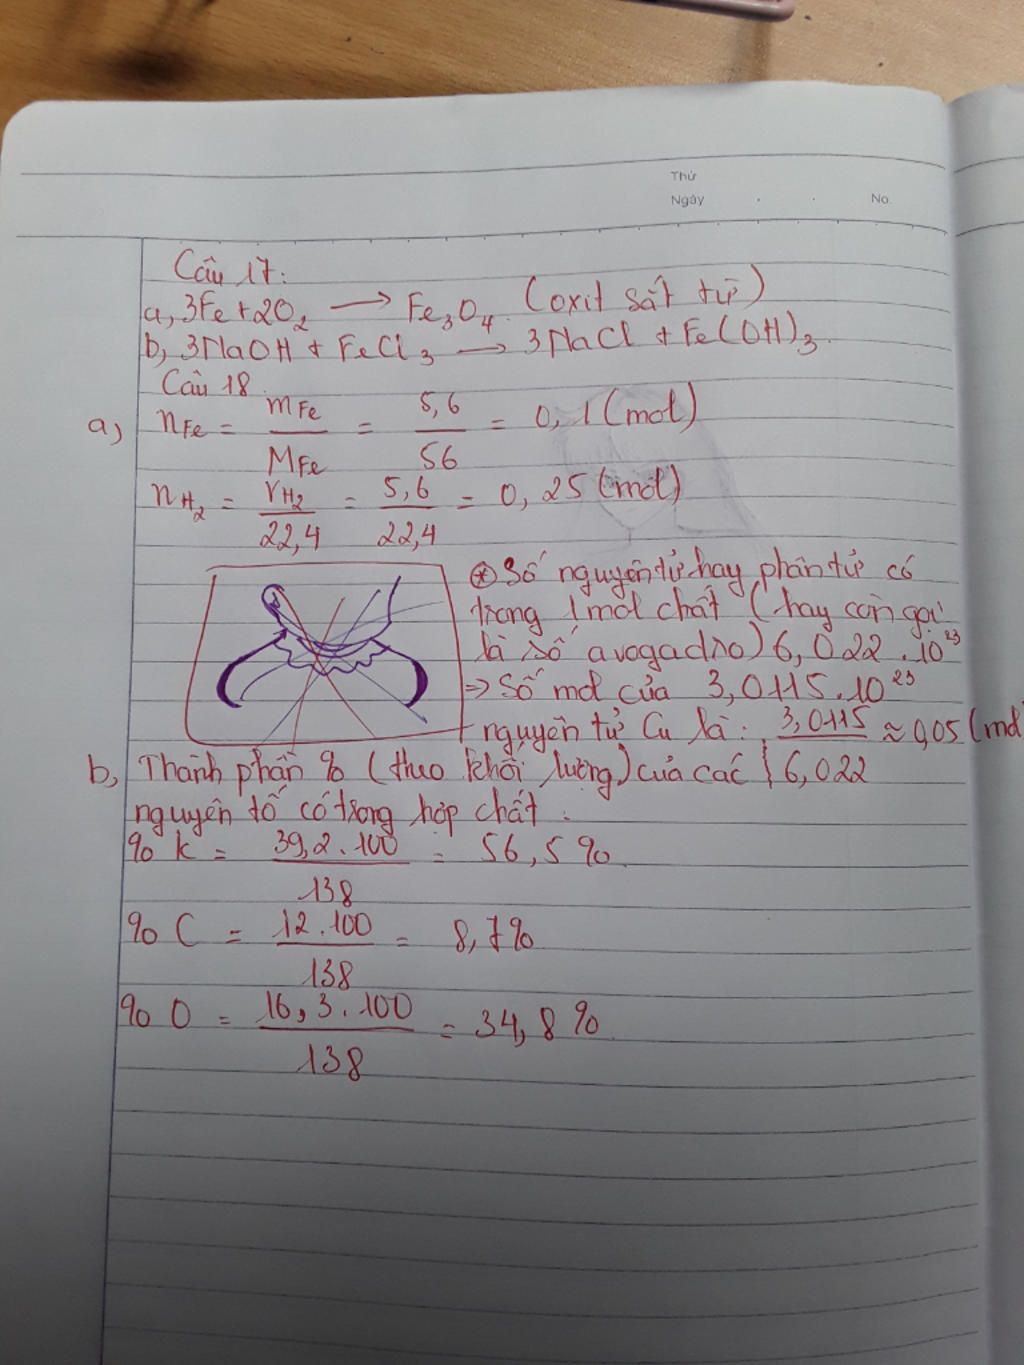 Thứ
Ngày . . No.
Câu 17:
a, 3Fe + 2O₂ → Fe₃O₄. (oxit sắt từ)
b, 3NaOH + FeCl₃ → 3NaCl + Fe(OH)₃.
Câu 18
a) nFe = mFe / MFe = 5,6 / 56 = 0,1 (mol)
nH₂ = VH₂ / 22,4 = 5,6 / 22,4 = 0,25 (mol)
* Số nguyên tử hay phân tử có
trong 1 mol chất (hay còn gọi
là số avogadro) 6,022.10²³
=> Số mol của 3,0115.10²³
nguyên tử Cu là: 3,0115 / 6,022 ≈ 0,05 (mol
b, Thành phần % (theo khối lượng) của các
nguyên tố có trong hợp chất:
% K = 39,2.100 / 138 = 56,5%.
% C = 12.100 / 138 = 8,7%
% O = 16,3.100 / 138 = 34,8%.